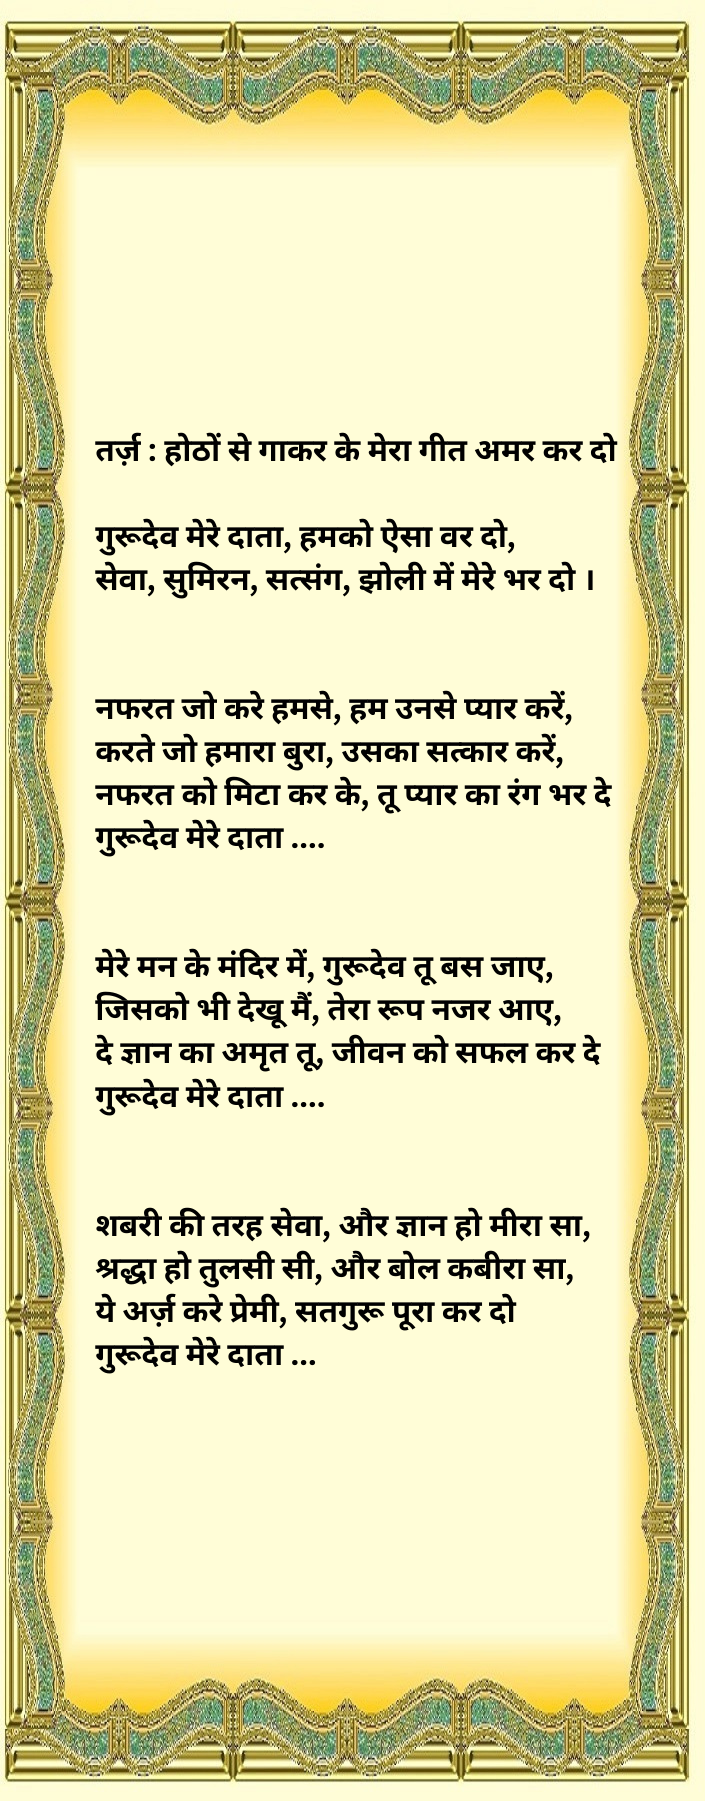 तर्ज़ : होठों से गाकर के मेरा गीत अमर कर दो
गुरूदेव मेरे दाता, हमको ऐसा वर दो,
सेवा, सुमिरन, सत्संग, झोली में मेरे भर दो ।
नफरत जो करे हमसे, हम उनसे प्यार करें,
करते जो हमारा बुरा, उसका सत्कार करें,
नफरत को मिटा कर के, तू प्यार का रंग भर दे
गुरूदेव मेरे दाता ....
मेरे मन के मंदिर में, गुरूदेव तू बस जाए,
जिसको भी देखू मैं, तेरा रूप नजर आए,
दे ज्ञान का अमृत तू, जीवन को सफल कर दे
गुरूदेव मेरे दाता ....
शबरी की तरह सेवा, और ज्ञान हो मीरा सा,
श्रद्धा हो तुलसी सी, और बोल कबीरा सा,
ये अर्ज़ करे प्रेमी, सतगुरू पूरा कर दो
गुरूदेव मेरे दाता ...